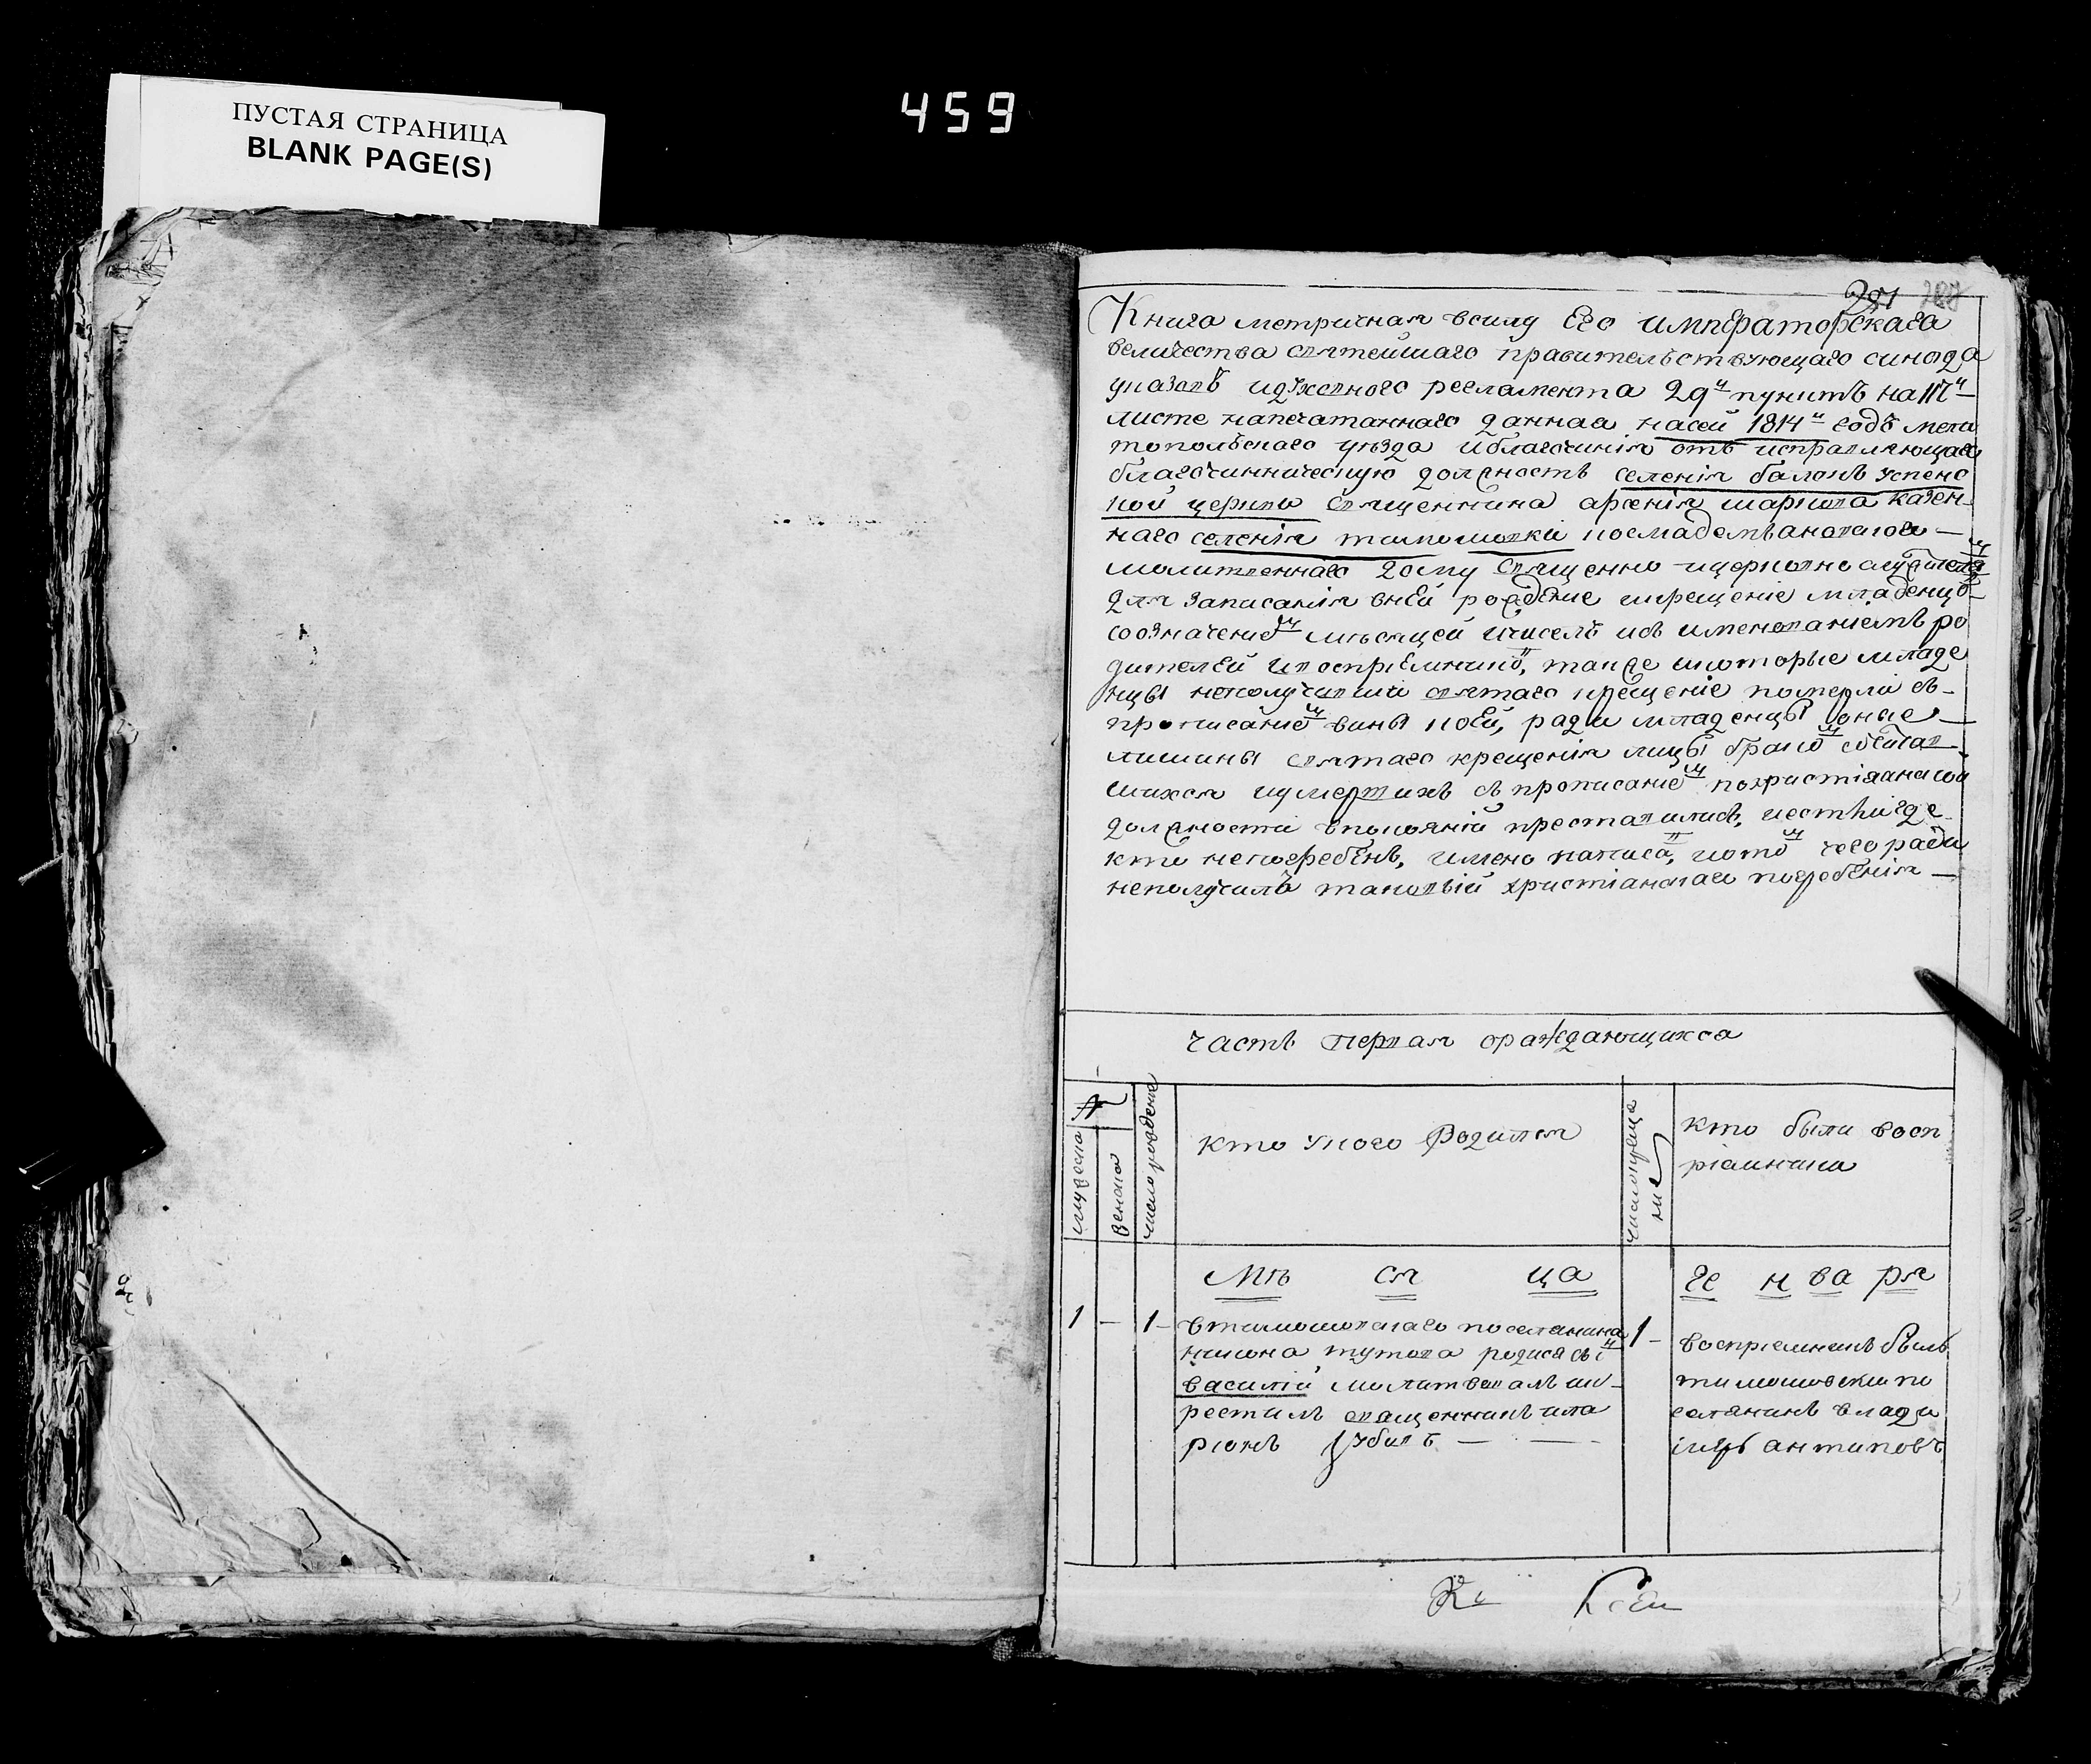 459
ПУСТАЯ СТРАНИЦА
BLANK PAGE(S)
281
Книга метричная всилу Его императорскаго
величества святейшаго правительствующаго синода
указовъ идуховного регламента 29й пунктъ на
листе напечатаннаго данная насей 1814й годъ мели
топольскаго уѣзда иблагочинія отъ исправляющаго
благочинническую должность селенія балокъ успенс
кой церкви священника арсенія казен
наго селенія тимошовки
молитвеннаго дому священно ицерковно
для записанія вней рождение икрещение младенцовъ
соозначениемъ мѣсяцей ичиселъ исъ именованиемъ ро
дителей ивосприемниковъ, также икоторые младе
нцы неполучивши святаго крещение померли съ
прописаниемъ вины коей, ради младенцы оные
лишины святаго крещенія лицы бракомъ сочетав
шихся иумершихъ съ прописаниемъ похристіянской
должности впокояніи преставились, иестли где
кто непогребенъ, имено написавъ, чего ради
неполучилъ таковый христіанскаго погребенія
часть первая ораждающихся
№
мужеска
женска
число рождение
кто укого Родился
число креще
ние
кто были восп
риемники
Мѣ ся ца
Ге н ва ря
1 — 1
втимошовскаго поселянина
никона тутова родися сынъ
василий молитвовалъ ик
рестилъ священникъ ила
рионъ
1
восприемникъ былъ
тимошовски по
селянинъ влади
миръ антиповъ